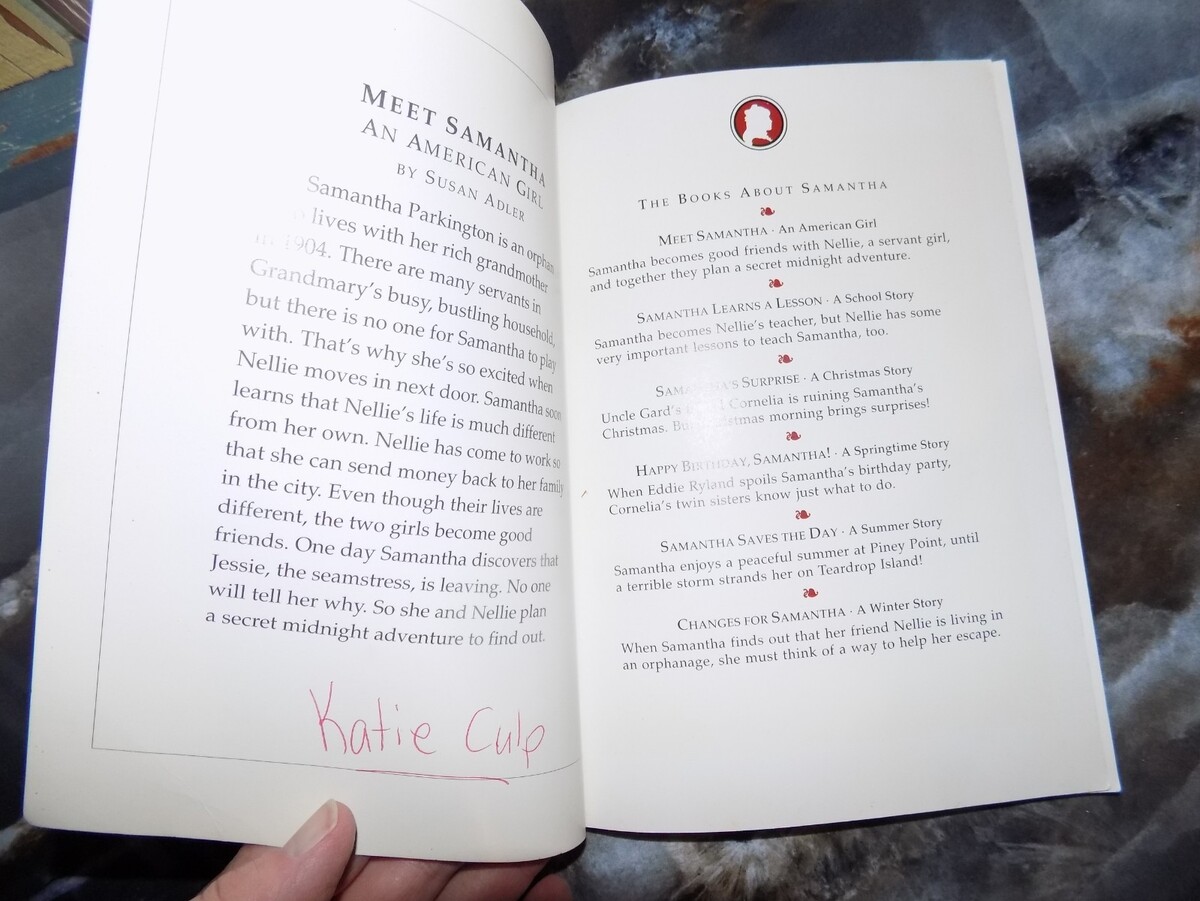 MEET SAMANTHA
AN AMERICAN GIRL
BY SUSAN ADLER
Samantha Parkington is an orphan
lives with her rich grandmother
in 1904. There are many servants in
Grandmary's busy, bustling household,
but there is no one for Samantha to play
with. That's why she's so excited when
Nellie moves in next door. Samantha soon
learns that Nellie's life is much different
from her own. Nellie has come to work so
that she can send money back to her family
in the city. Even though their lives are
different, the two girls become good
friends. One day Samantha discovers that
Jessie, the seamstress, is leaving. No one
will tell her why. So she and Nellie plan
a secret midnight adventure to find out.
Katie Culp
THE BOOKS ABOUT SAMANTHA
MEET SAMANTHA · An American Girl
Samantha becomes good friends with Nellie, a servant girl,
and together they plan a secret midnight adventure.
SAMANTHA LEARNS A LESSON · A School Story
Samantha becomes Nellie's teacher, but Nellie has some
very important lessons to teach Samantha, too.
SAMANTHA'S SURPRISE · A Christmas Story
Uncle Gard's Cornelia is ruining Samantha's
Christmas. But Christmas morning brings surprises!
HAPPY BIRTHDAY, SAMANTHA! · A Springtime Story
When Eddie Ryland spoils Samantha's birthday party,
Cornelia's twin sisters know just what to do.
SAMANTHA SAVES THE DAY · A Summer Story
Samantha enjoys a peaceful summer at Piney Point, until
a terrible storm strands her on Teardrop Island!
CHANGES FOR SAMANTHA · A Winter Story
When Samantha finds out that her friend Nellie is living in
an orphanage, she must think of a way to help her escape.